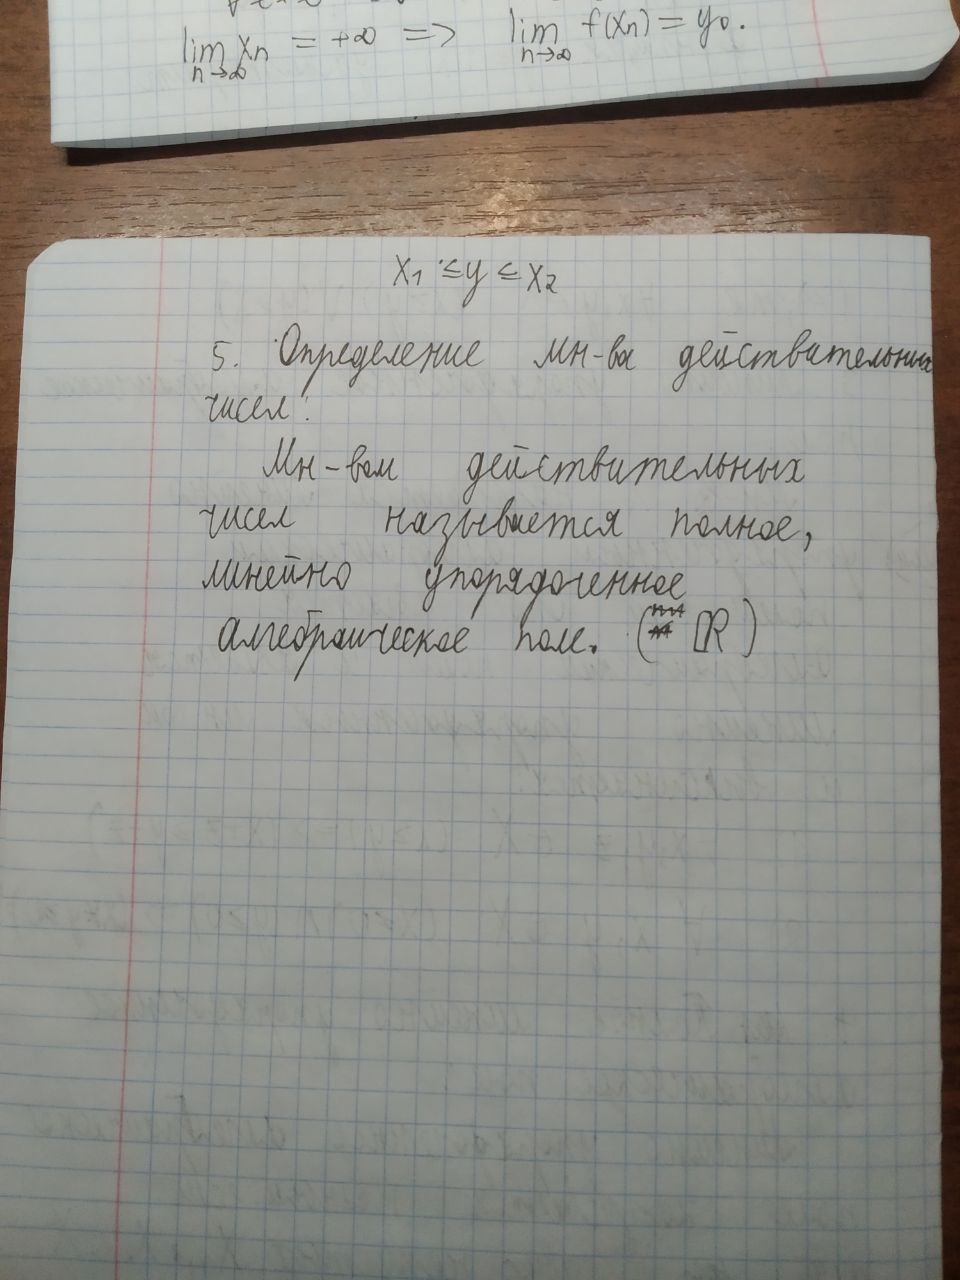 lim xn = +∞ => lim f(xn) = y0.
n→∞ n→∞
x1 ≤ y ≤ x2
5. Определение мн-ва действительных
чисел:
Мн-вом действительных
чисел называется полное,
линейно упорядоченное
алгебраическое поле. (ℝ)